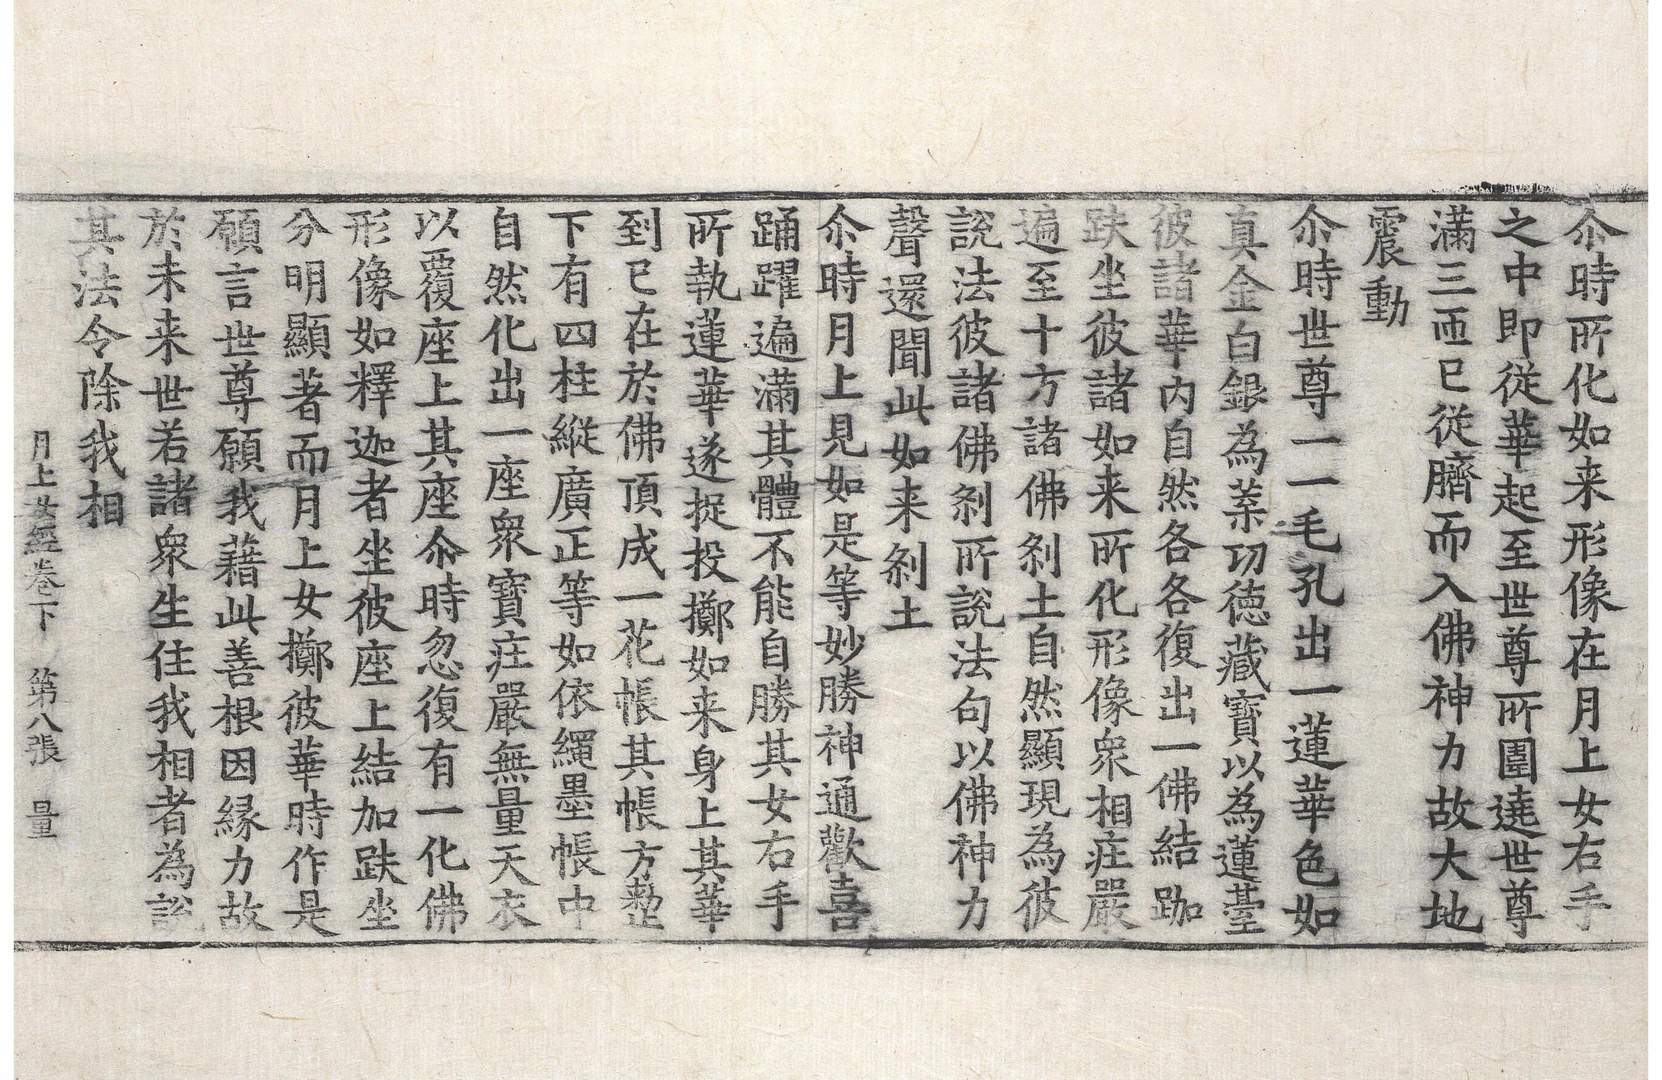 尒時所化如来形像在月上女右手
之中即從華起至世尊所圍遶世尊
滿三迊已從臍而入佛神力故大地
震動
尒時世尊一一毛孔出一蓮華色如
真金白銀為葉功徳藏寶以為蓮臺
彼諸華内自然各各復出一佛結跏
趺坐彼諸如来所化形像衆相莊嚴
遍至十方諸佛刹土自然顯現為彼
說法彼諸佛刹所說法句以佛神力
聲還聞此如来刹土
尒時月上見如是等妙勝神通歡喜
踊躍遍滿其體不能自勝其女右手
所執蓮華遂捉投擲如来身上其華
到已在於佛頂成一花帳其帳方整
下有四柱縱廣正等如依繩墨帳中
自然化出一座衆寶莊嚴無量天衣
以覆座上其座尒時忽復有一化佛
形像如釋迦者坐彼座上結加趺坐
分明顯著而月上女擲彼華時作是
願言世尊願我藉此善根因縁力故
於未来世若諸衆生住我相者為說
其法令除我相
月上女經卷下 第八張 量